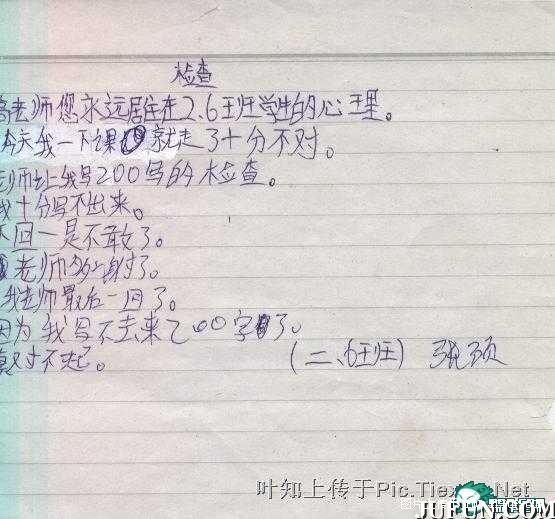 检查
高老师您永远居住在2.6班学生的心理。
今天我一下课就走了十分不对。
老师让我写200字的检查。
我十分写不出来。
下回一定不敢了。
老师多谢了。
老师最后一回了。
因为我写不去来200字了。
真对不起。
(二、6班) 张颂
叶知上传于Pic.Tiex Net
JUPUN.COM